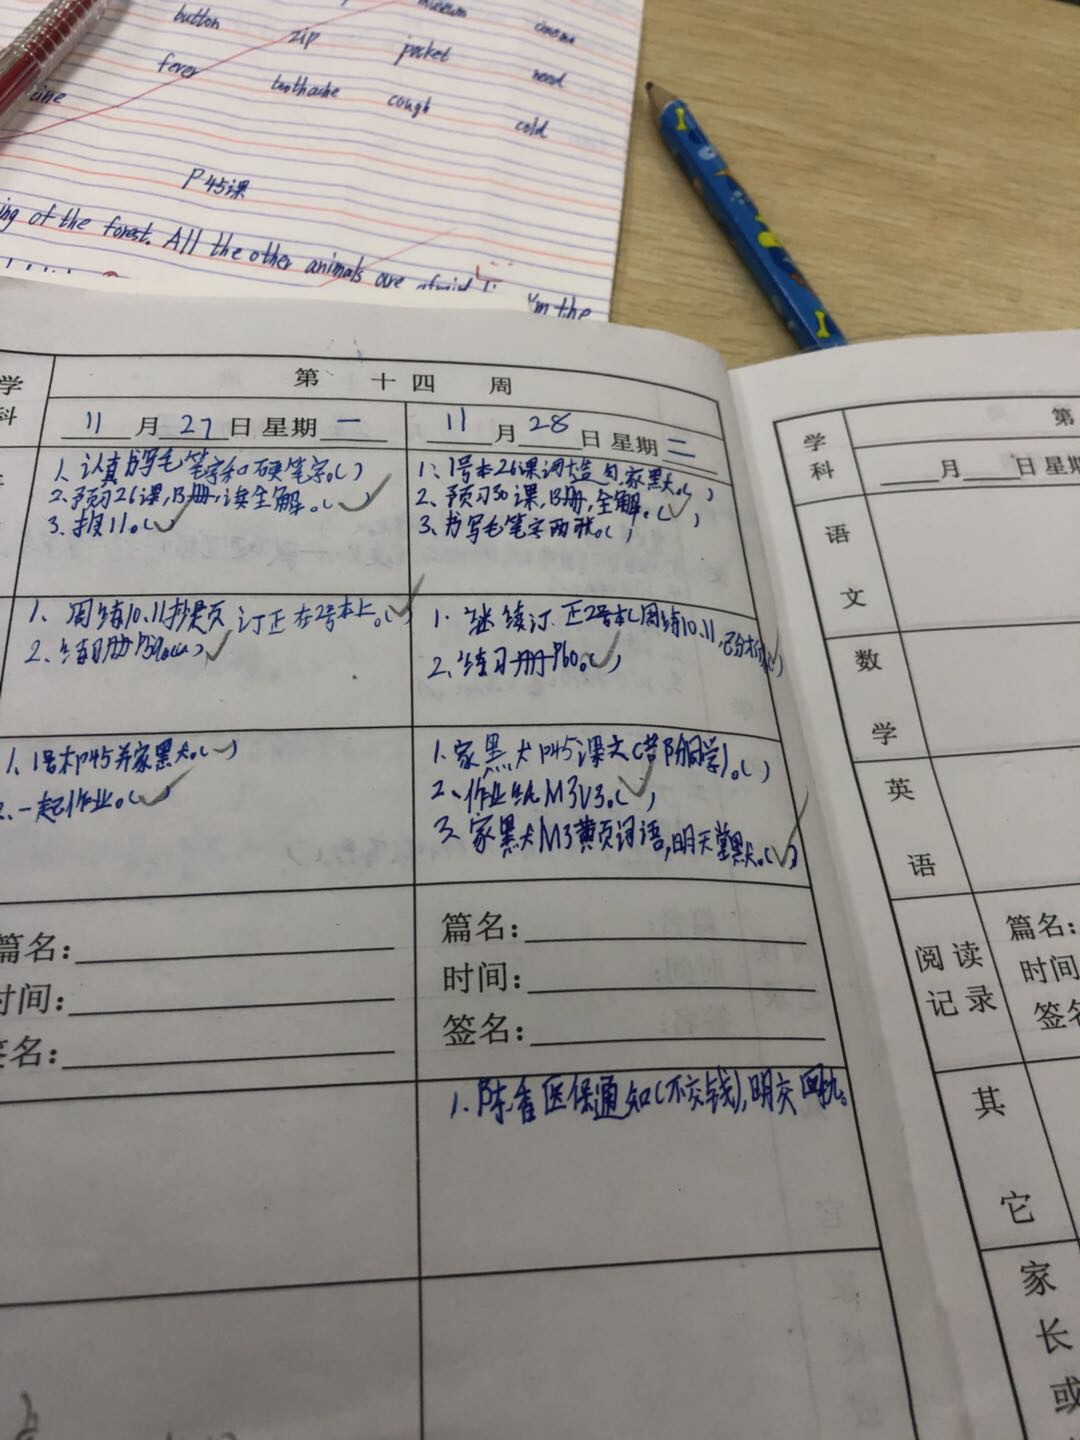 button
zip
pocket
need
fever
toothache
cough
cold
P45课
ing of the forest. All the other animals are afraid
I'm the
学科
第 十四 周
11月27日星期一
11月28日星期二
1、认真书写毛笔字和硬笔字。( )
2、预习26课,B册,读全解。(✓)
3、报11。(✓)
1、1号本26课词+造句,家默。( )
2、预习30课,B册,全解。(✓)
3、书写毛笔字两张。( )
1、周练10.11 订正在2号本上。(✓)
2、练习册P59。(✓)
1、继续订正2号本上周练10.11,
2、练习册P60。(✓)
1、1号本P45并家默。(✓)
2、一起作业。(✓)
1、家默P45课文(部分同学)。( )
2、作业纸M3U3。(✓)
3、家默M3黄页词语,明天堂默。(✓)
篇名:
时间:
签名:
篇名:
时间:
签名:
1、医保通知(不交钱),明交回执。
学科
第
月 日 星期
语文
数学
英语
阅读记录
篇名:
时间
签名
其它
家长或